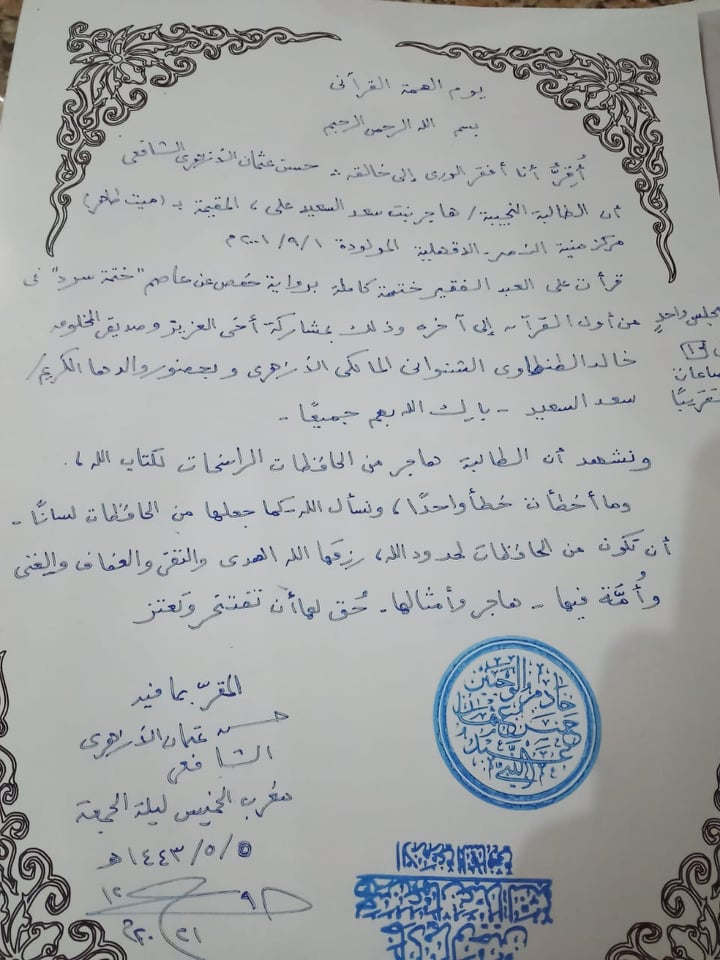 يوم الهمة القرآنى
بسم الله الرحمن الرحيم
أُقِرُّ أنا أفقر الورى إلى خالقه :- حسن عثمان الأزهرى الشافعى
أن الطالبة النجيبة / هاجر بنت سعد السعيد على، المقيمة بـ (ميت طاهر)
مركز منية النصر - الدقهلية المولودة ٢٠٠١/٩/١م
قرأت على العبد الفقير ختمة كاملة برواية حفص عن عاصم "ختمة سرد" فى
مجلس واحدٍ من أول القرآن إلى آخره وذلك بمشاركة أخى العزيز وصديقى المخلوم
(١٣) ساعات تقريبًا
خالد الطنطاوى الشنوانى المالكى الأزهرى وبحضور والدها الكريم /
سعد السعيد - بارك الله بهم جميعًا -
ونشهد أن الطالبة هاجر من الحافظات الراسخات لكتاب الله،
وما أخطأت خطأ واحدًا، ونسأل الله - كما جعلها من الحافظات لسانًا -
أن تكون من الحافظات لحدود الله، رزقها الله الهدى والتقى والعفاف والغنى
وأُمَّة فيها - هاجر وأمثالها - حُق لها أن تفتخر وتعتز
المقرّ بما فيه
حسن عثمان الأزهرى
الشافعى
مغرب الخميس ليلة الجمعة
١٤٤٣/٥/٥هـ
٩ ١٢
٢٠٢١
خادم الوحيين
حسن عثمان